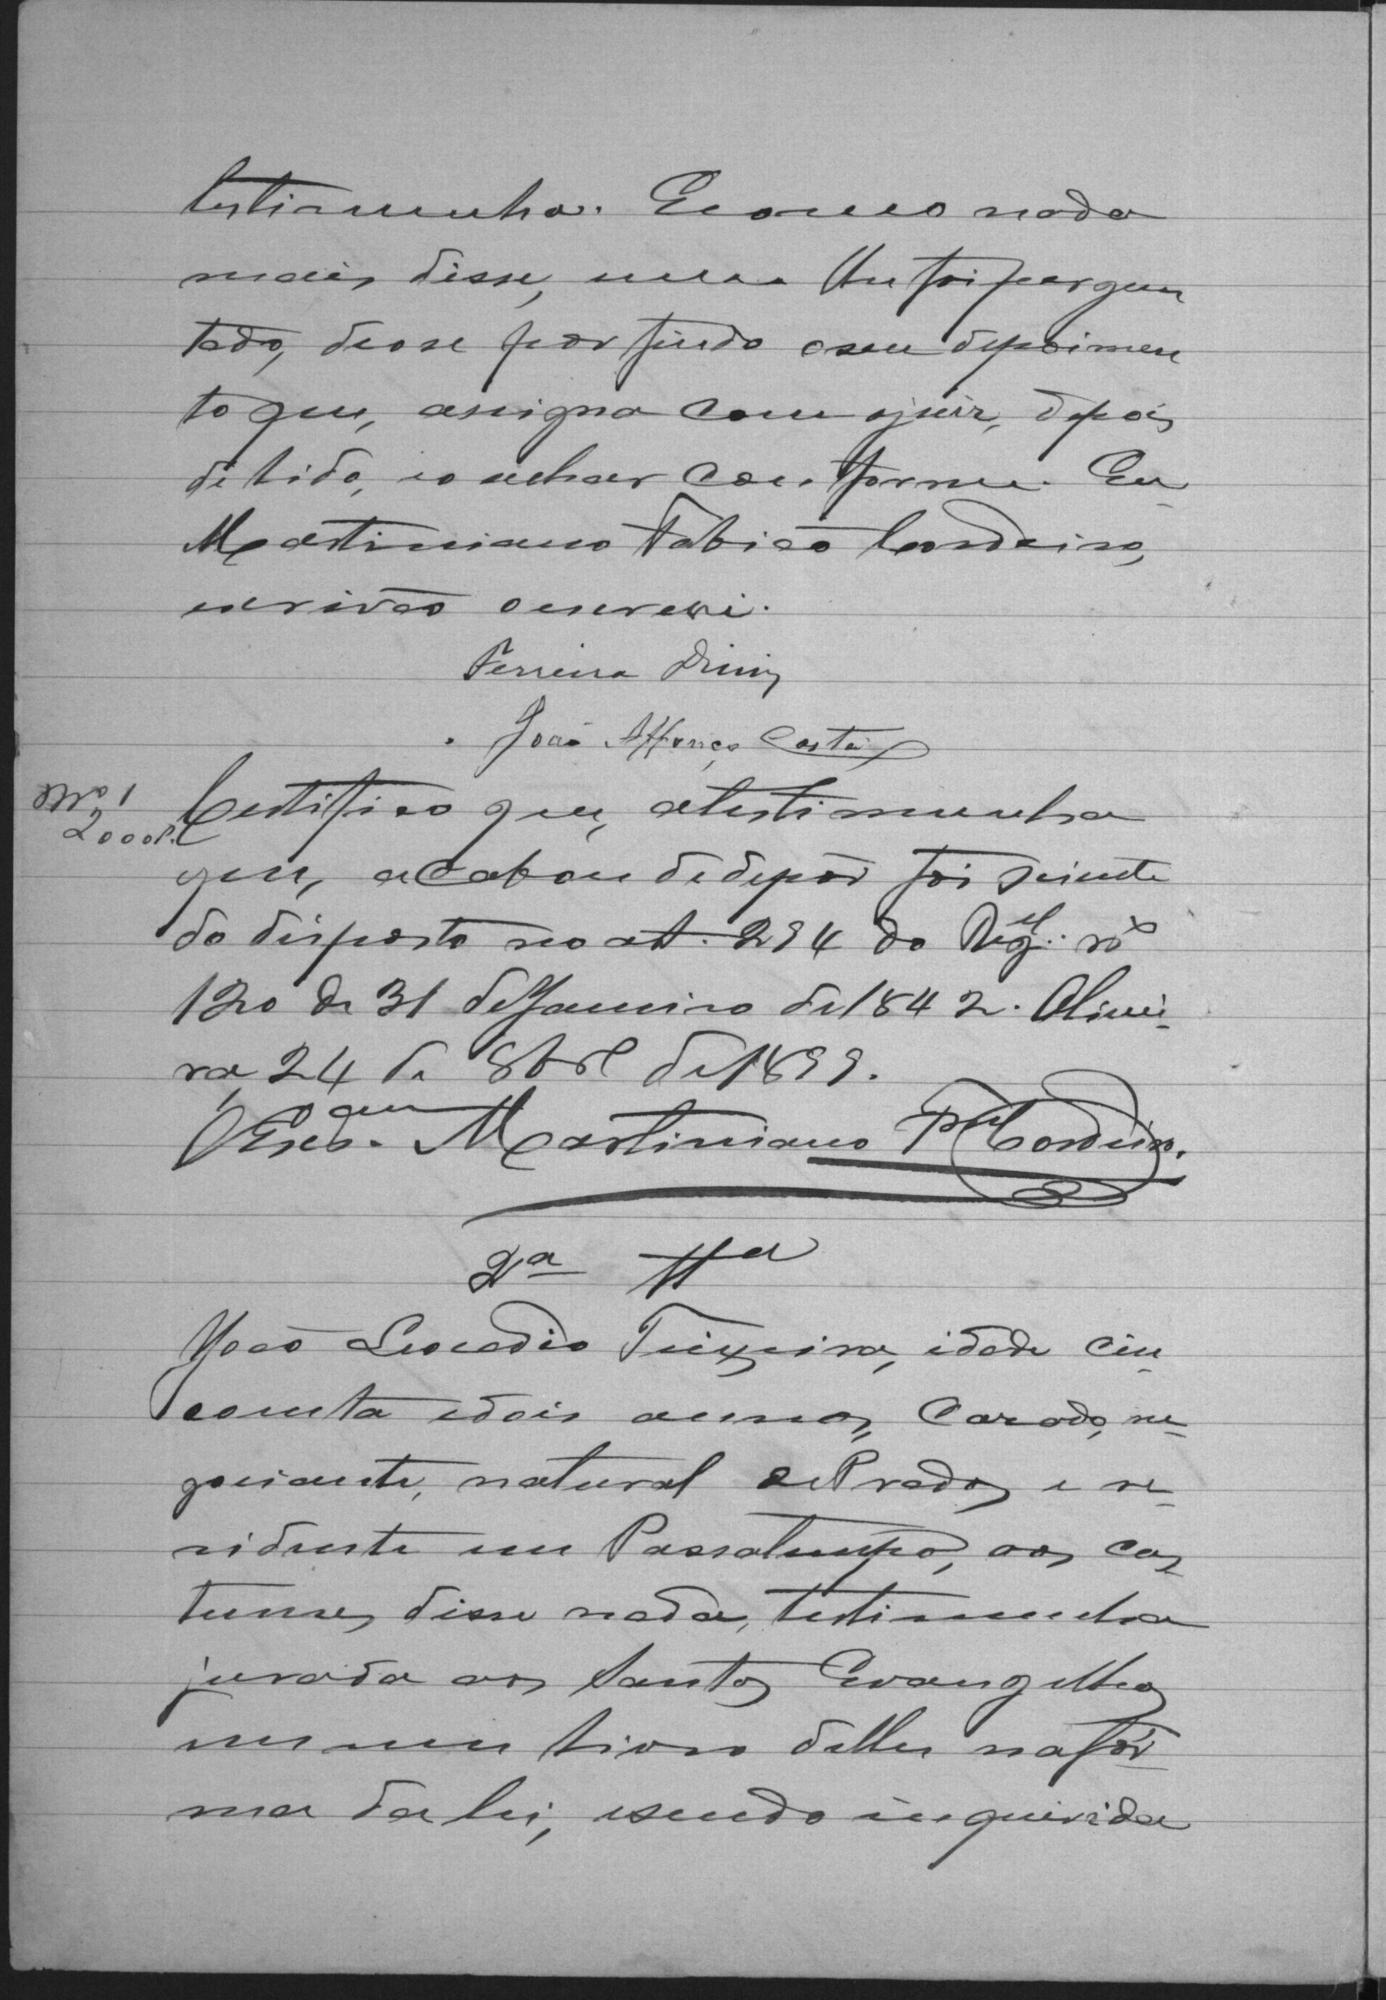 testimunha. E como nada
mais disse, nem lhe foi pergun
tado, deo se por findo o seu depoimen
to que, assigna com o juiz, depois
de lido, e o achar conforme. Eu
Martiniano Fabião Cordeiro,
escrivão o escrevi.
Ferreira Diniz
João Affonço Costa
Nº 1
2000 r.
Certifico que, a testimunha
que, acabou de depôr foi sciente
do disposto no art. 294 do Reg.el nº
120 de 31 de Janeiro de 1842. Olivei-
ra 24 de 8brº de 1899.
O Escam. Martiniano Fel Cordeiro.
2ª Ttª
João Leocadio Teixeira, idade cin-
coenta e dois annos, Casado, ne-
gociante, natural de Prados e re-
sidente em Passatempo, aos cos-
tumes, disse nada, testimunha
jurada aos Santos Evangelhos
em um livro delles na fór-
ma da lei, e sendo inquirida